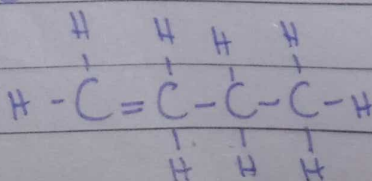 H H H H
H - C = C - C - C - H
H H H